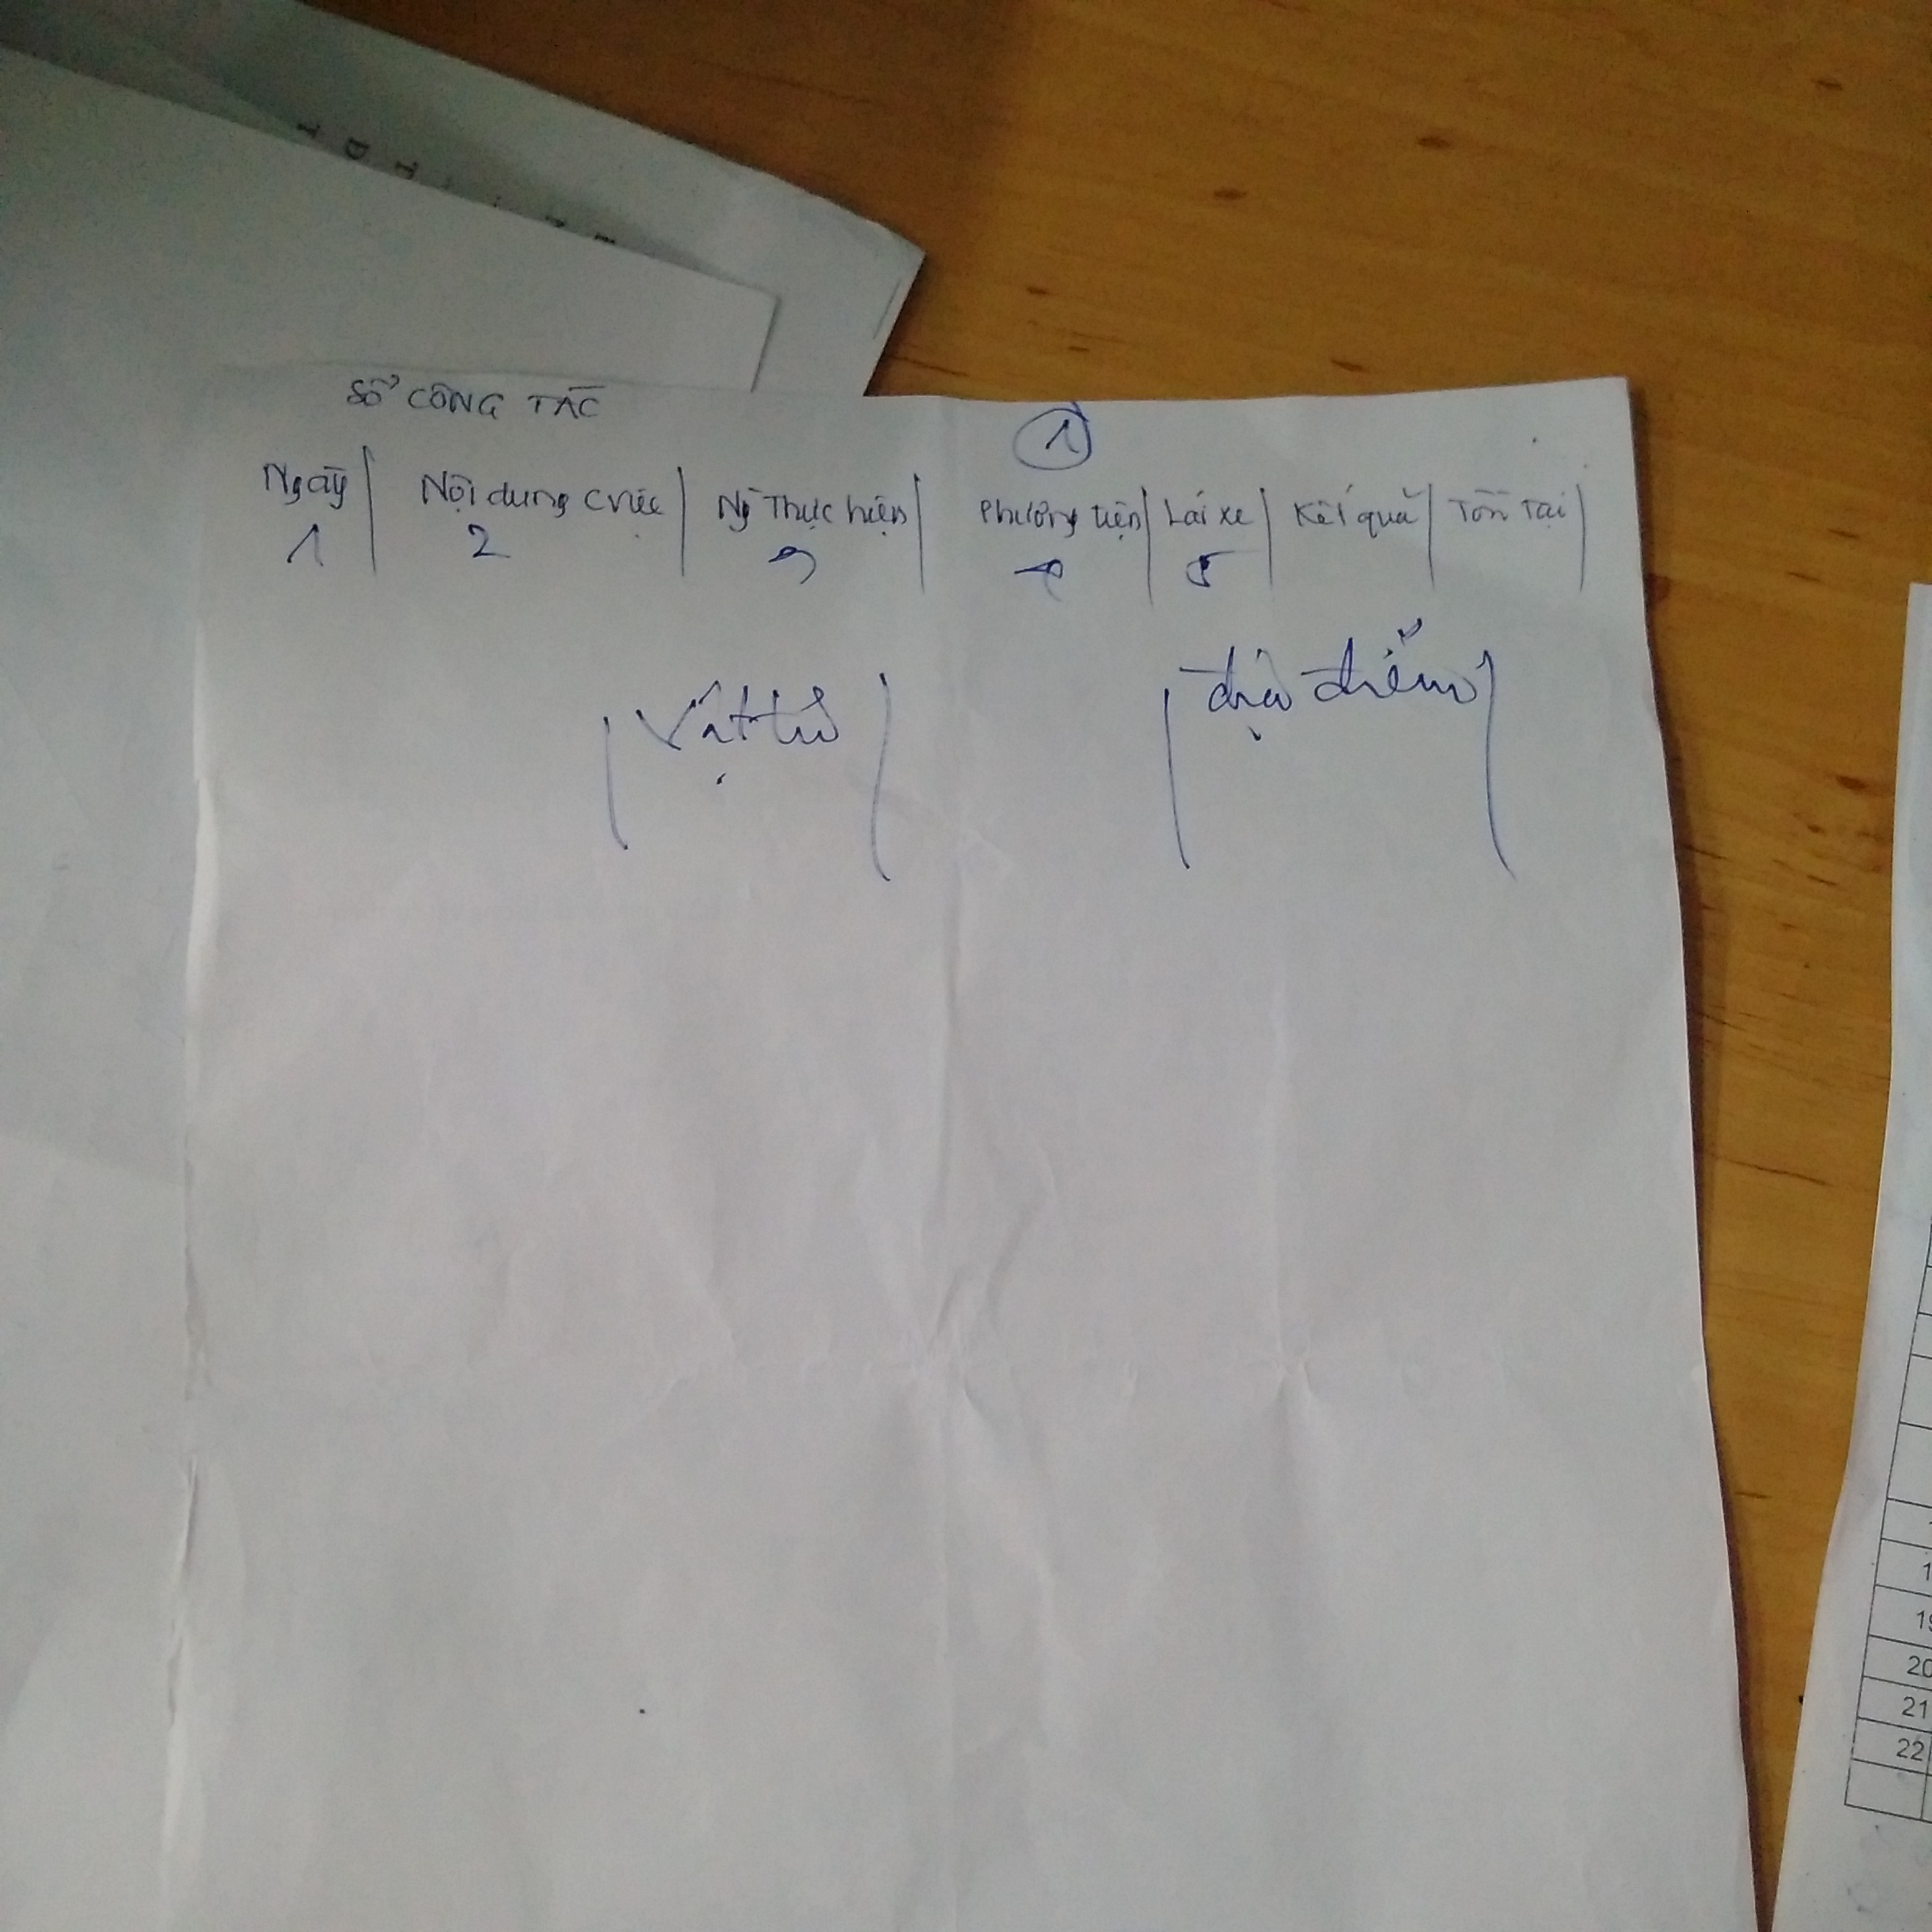 SỔ CÔNG TÁC
1
Ngày | Nội dung c việc | Ng Thực hiện | Phương tiện | Lái xe | Kết quả | Tồn Tại |
1 2 3 4 5
| Vật tư | | địa điểm |
1
19
20
21
22